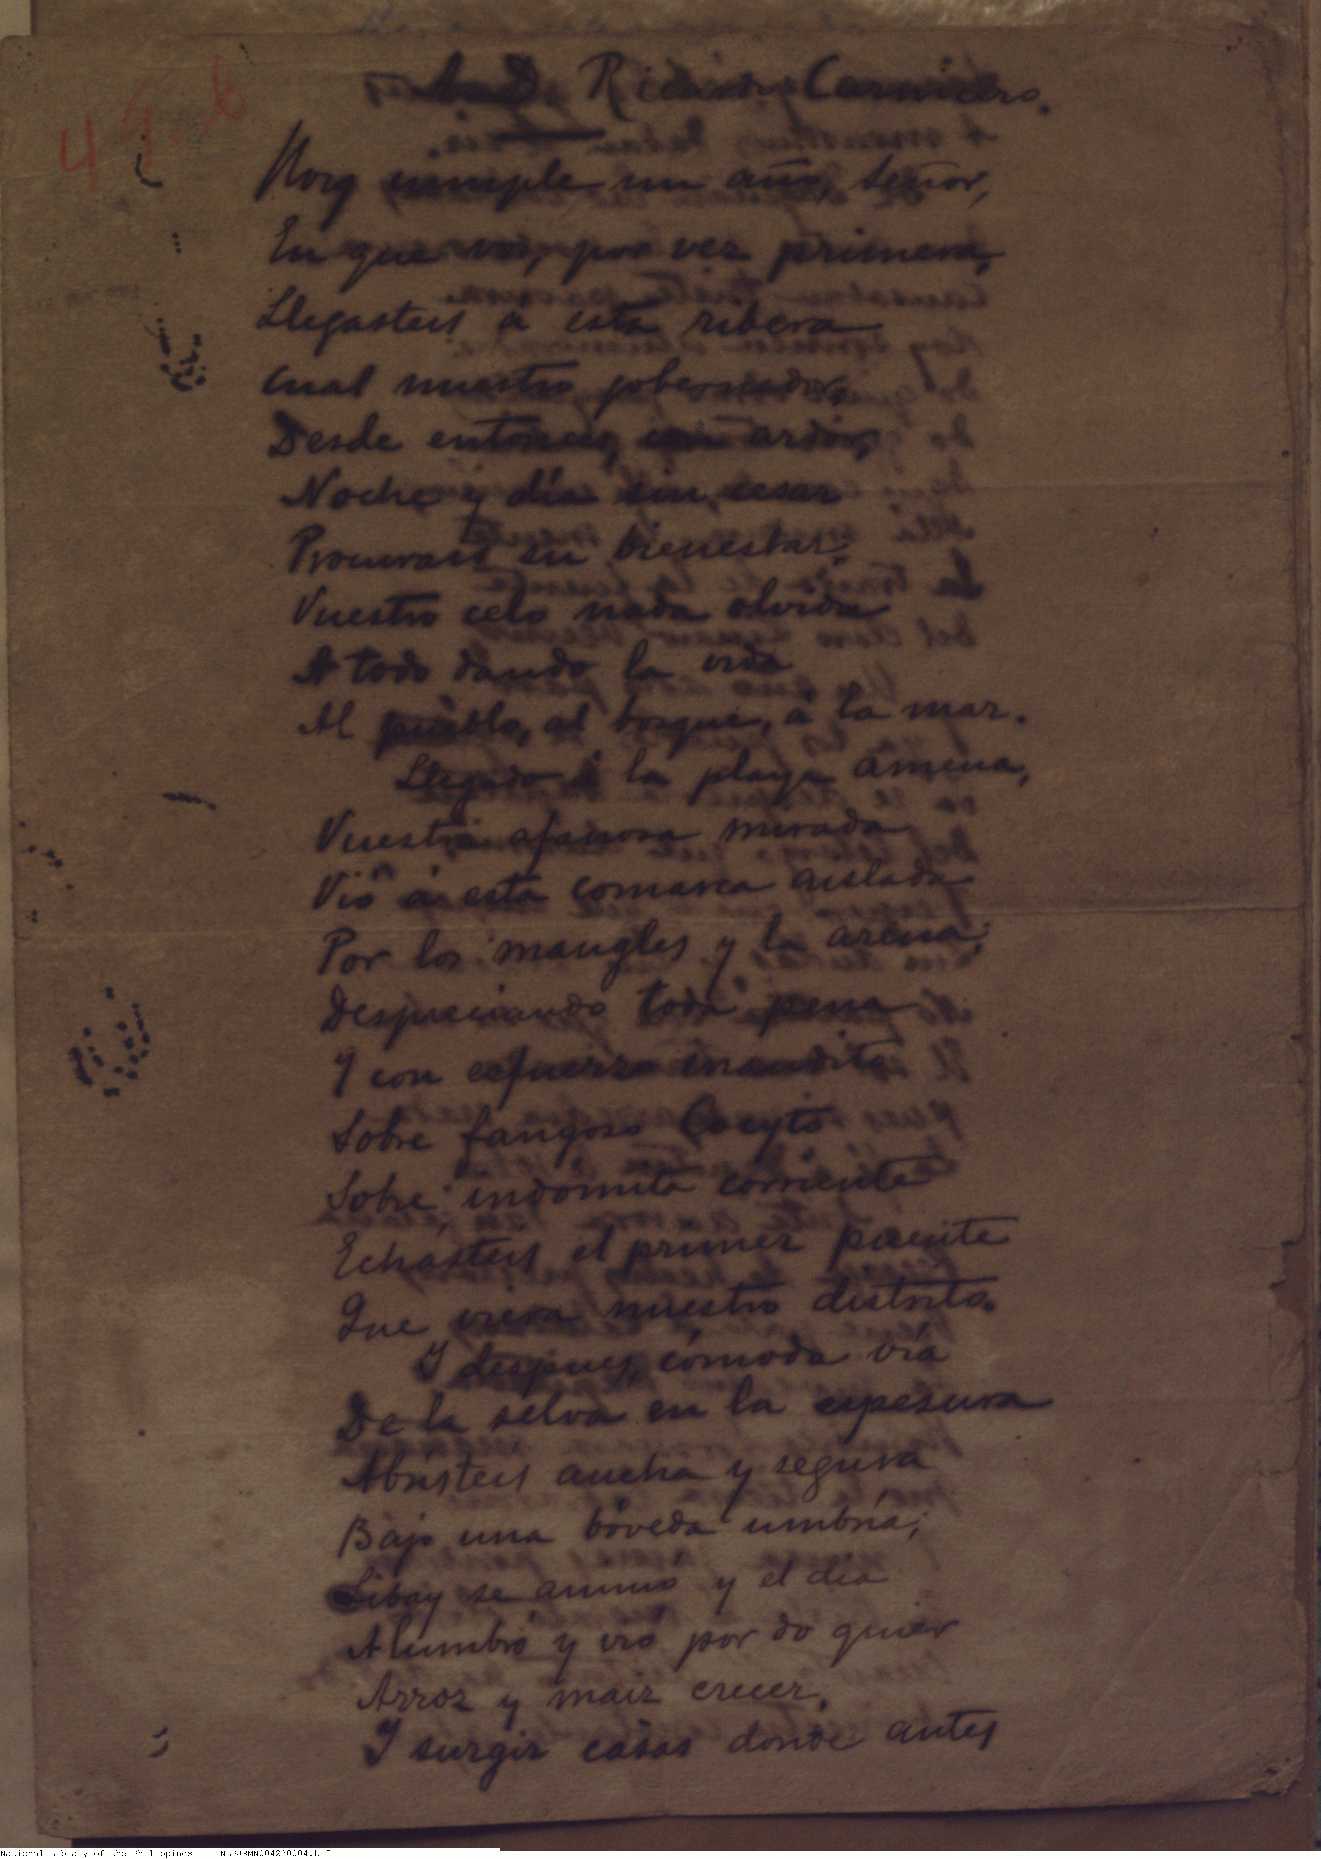 49. b
A D. Ricardo Carnicero.
Hoy cumple un año, Señor,
En que vos, por vez primera,
Llegasteis a esta ribera
Cual nuestro gobernador,
Desde entonces, con ardor,
Noche y día sin cesar
Procurais su bienestar:
Vuestro celo nada olvida
A todo dando la vida
Al pueblo, al bosque, á la mar.
Llegado á la playa amena,
Vuestra afanosa mirada
Vió á esta comarca aislada
Por los mangles y la arena;
Despreciando toda pena
Y con esfuerzo inaudito
Sobre fangoso Cocyto
Sobre indómita corriente
Echásteis el primer puente
Que viera nuestro distrito.
Y despues, cómoda vía
De la selva en la espesura
Abristeis ancha y segura
Bajo una bóveda umbría;
Libay se animó y el día
Alumbró y vió por do quier
Arroz y maiz crecer.
Y surgir casas donde antes
National Library of the Philippines